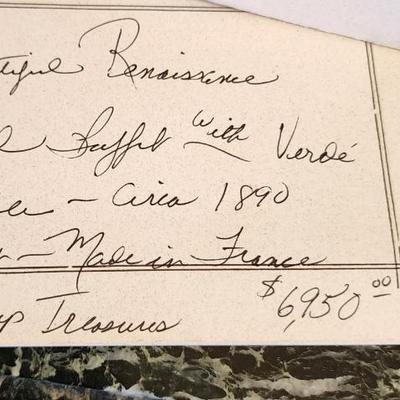 Renaissance
Buffet with Verdé
- Circa 1890
- Made in France
$6,950.00
Treasures